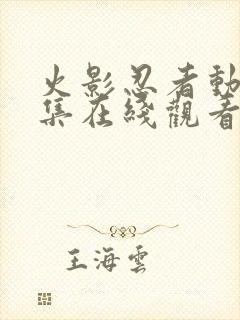 火影忍者動
集在綫觀看
王海雲